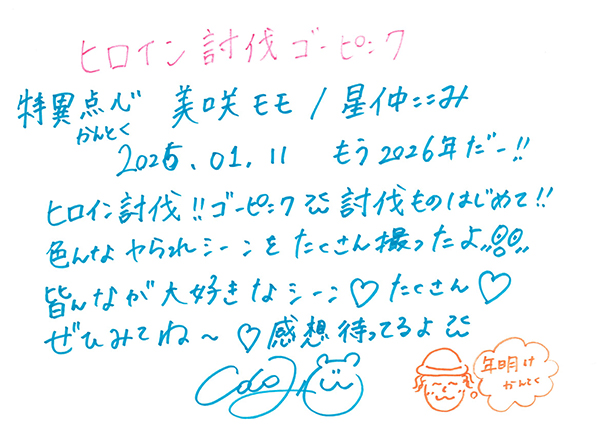 ヒロイン討伐ゴーピンク
特異点心 美咲モモ/星仲ここみ
かんとく
2025.01.11 もう2026年だー!!
ヒロイン討伐!!ゴーピンク 討伐ものはじめて!!
色んなヤられシーンをたくさん撮ったよ
皆んなが大好きなシーン♡たくさん♡
ぜひみてね〜♡感想待ってるよ
年明け
かんとく